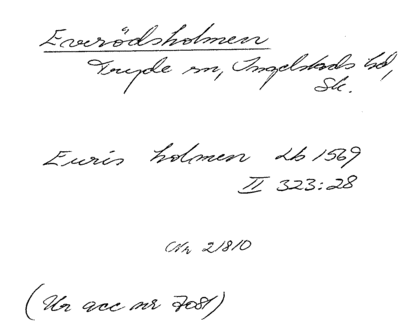 Everödsholmen
Tryde sn, Ingelstads hd,
Sk.
Euris holmen Lb 1569
II 323:28
Nr 21810
(Ur acc nr 7081)